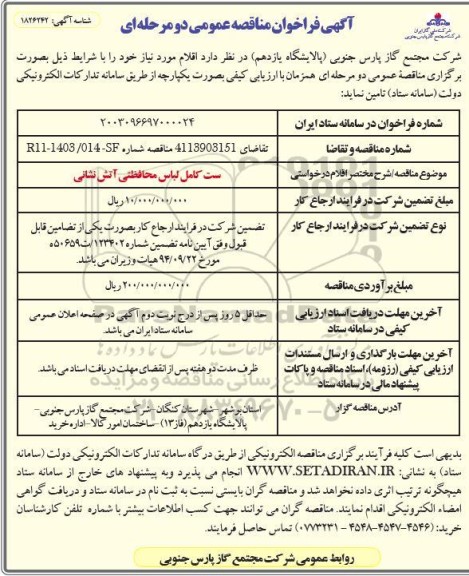 شناسه آگهی: ۱۸۲۶۲۴۲
آگهی فراخوان مناقصه عمومی دو مرحله ای
شرکت ملی گاز ایران
شرکت مجتمع گاز پارس جنوبی
شرکت مجتمع گاز پارس جنوبی (پالایشگاه یازدهم) در نظر دارد اقلام مورد نیاز خود را با شرایط ذیل بصورت
برگزاری مناقصۀ عمومی دو مرحله ای همزمان با ارزیابی کیفی بصورت یکپارچه از طریق سامانه تدارکات الکترونیکی
دولت (سامانه ستاد) تامین نماید:
شماره فراخوان در سامانه ستاد ایران
۲۰۰۳۰۹۶۶۹۷۰۰۰۰۲۴
شماره مناقصه و تقاضا
تقاضای 4113903151 مناقصه شماره R11-1403/014-SF
موضوع مناقصه/شرح مختصر اقلام درخواستی
ست کامل لباس محافظتی آتش نشانی
مبلغ تضمین شرکت در فرایند ارجاع کار
۱۰/۰۰۰/۰۰۰/۰۰۰ ریال
نوع تضمین شرکت در فرایند ارجاع کار
تضمین شرکت در فرایند ارجاع کار بصورت یکی از تضامین قابل
قبول وفق آیین نامه تضمین شماره ۱۲۳۴۰۲/ت۵۰۶۵۹ه
مورخ ۹۴/۰۹/۲۲ هیات وزیران می باشد.
مبلغ برآوردی مناقصه
۲۰۰/۰۰۰/۰۰۰/۰۰۰ ریال
آخرین مهلت دریافت اسناد ارزیابی
کیفی در سامانه ستاد
حداقل ۵ روز پس از درج نوبت دوم آگهی در صفحه اعلان عمومی
سامانه ستاد ایران می باشد.
آخرین مهلت بارگذاری و ارسال مستندات
ارزیابی کیفی (رزومه)، اسناد مناقصه و پاکات
پیشنهاد مالی در سامانه ستاد
ظرف مدت دو هفته پس از انقضای مهلت دریافت اسناد می باشد.
آدرس مناقصه گزار
استان بوشهر- شهرستان کنگان -شرکت مجتمع گاز پارس جنوبی-
پالایشگاه یازدهم (فاز۱۳) -ساختمان امور کالا-اداره خرید
بدیهی است کلیه فرآیند برگزاری مناقصه الکترونیکی از طریق درگاه سامانه تدارکات الکترونیکی دولت (سامانه
ستاد) به نشانی: WWW.SETADIRAN.IR انجام می پذیرد و به پیشنهاد های خارج از سامانه ستاد
هیچگونه ترتیب اثری داده نخواهد شد و مناقصه گران بایستی نسبت به ثبت نام در سامانه ستاد و دریافت گواهی
امضاء الکترونیکی اقدام نمایند. مناقصه گران می توانند جهت کسب اطلاعات بیشتر با شماره تلفن کارشناسان
خرید: (۴۵۴۶-۴۵۴۷-۴۵۴۸ - ۰۷۷۳۲۳۱) تماس حاصل فرمایند.
روابط عمومی شرکت مجتمع گاز پارس جنوبی